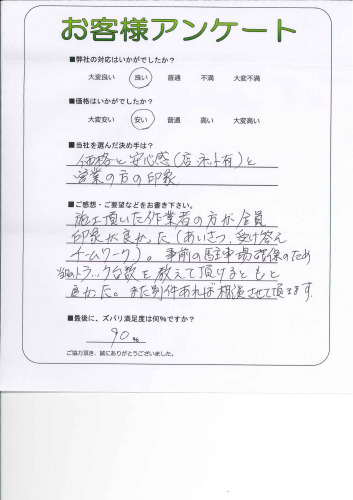 お客様アンケート
■弊社の対応はいかがでしたか？
大変良い 良い 普通 不満 大変不満
■価格はいかがでしたか？
大変安い 安い 普通 高い 大変高い
■当社を選んだ決め手は？
価格と安心感(店ネット有)と
営業の方の印象
■ご感想・ご要望などをお書き下さい。
施工頂いた作業者の方が全員
印象が良かった(あいさつ、受け答え
チームワーク)。事前の駐車場確保のため
トラック台数を教えて頂けるともと
良かった。また別件あれば相談させて頂きます。
■最後に、ズバリ満足度は何%ですか？
90%
ご協力頂き、誠にありがとうございました。